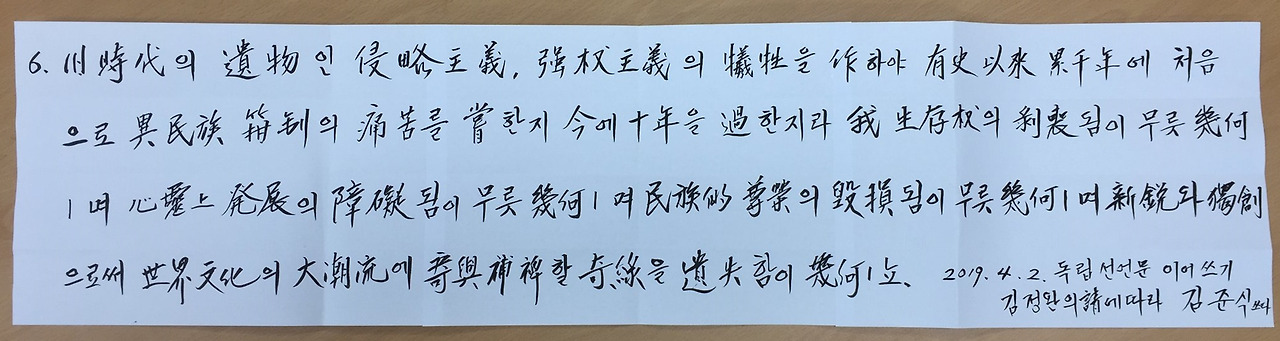 6. 旧時代의 遺物인 侵略主義, 强权主義의 犧牲을 作하야 有史以來 累千年에 처음
으로 異民族 箝制의 痛苦를 嘗한지 今에 十年을 過한지라 我 生存权의 剥喪됨이 무릇 幾何
ㅣ며 心靈上 発展의 障礙됨이 무릇 幾何ㅣ며 民族的 尊榮의 毀損됨이 무릇 幾何ㅣ며 新銳와 獨創
으로써 世界文化의 大潮流에 寄與補裨할 奇緣을 遺失함이 幾何ㅣ뇨.
2019. 4. 2. 독립선언문 이어쓰기
김정완의 請에따라 김준식 쓰다